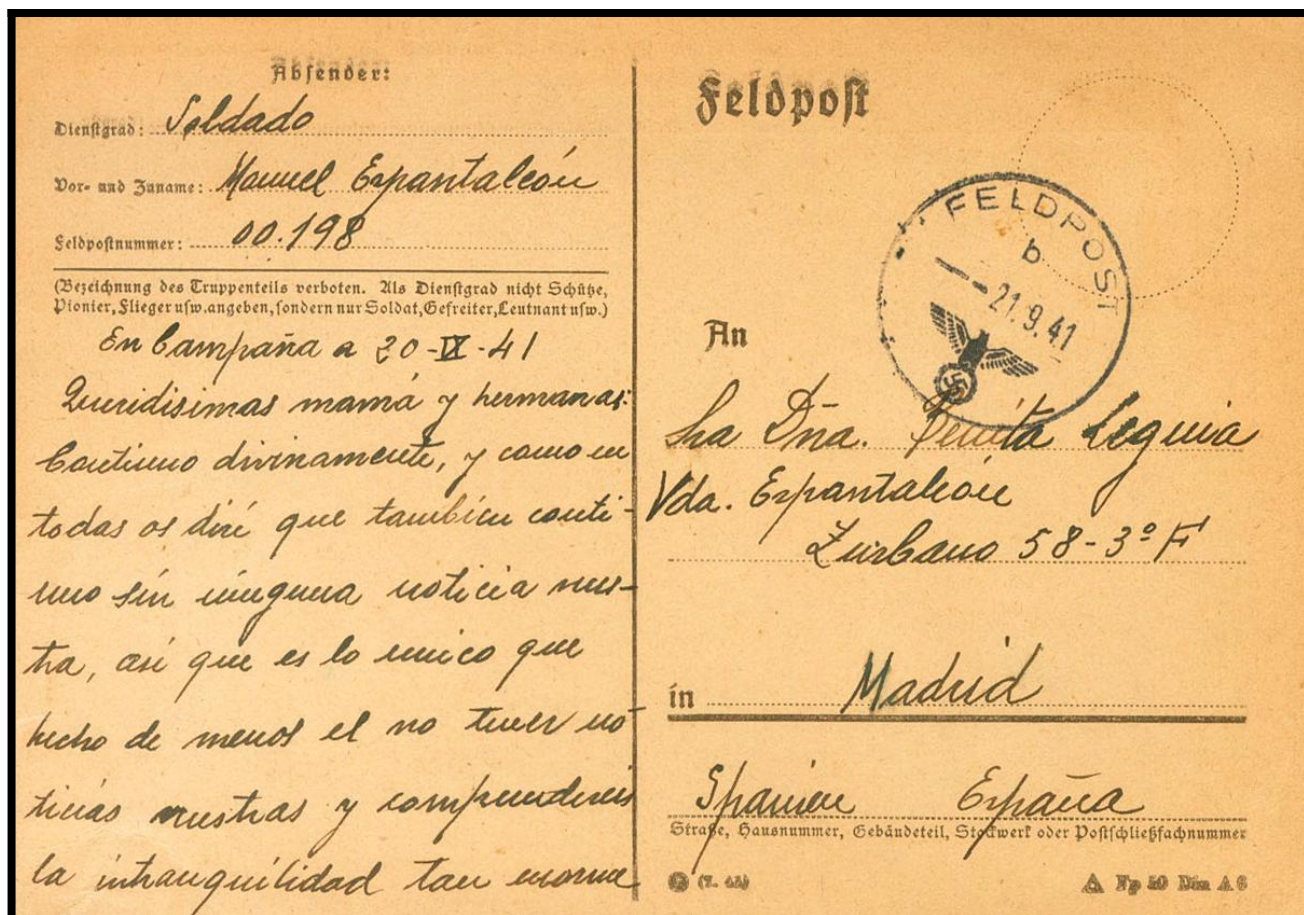 Absender:
Dienstgrad: Soldado
Vor- und Zuname: Manuel Espantaleón
Feldpostnummer: 00.198
(Bezeichnung des Truppenteils verboten. Als Dienstgrad nicht Schütze,
Pionier, Flieger usw. angeben, sondern nur Soldat, Gefreiter, Leutnant usw.)
En Campaña a 20-IX-41
Queridisimas mamá y hermanas:
Continuo divinamente, y como en
todas os diré que también conti-
nuo sin ninguna noticia vues-
tra, asi que es lo unico que
hecho de menos el no tener no
ticias vuestras y comprendereis
la intranquilidad tan enorme
Feldpost
FELDPOST
b
21.9.41
An
Sra Dña. Benita Leguia
Vda. Espantaleón
Zurbano 58-3º F
in Madrid
Spanien España
Straße, Hausnummer, Gebäudeteil, Stockwerk oder Postschließfachnummer
Fp 50 Din A 6